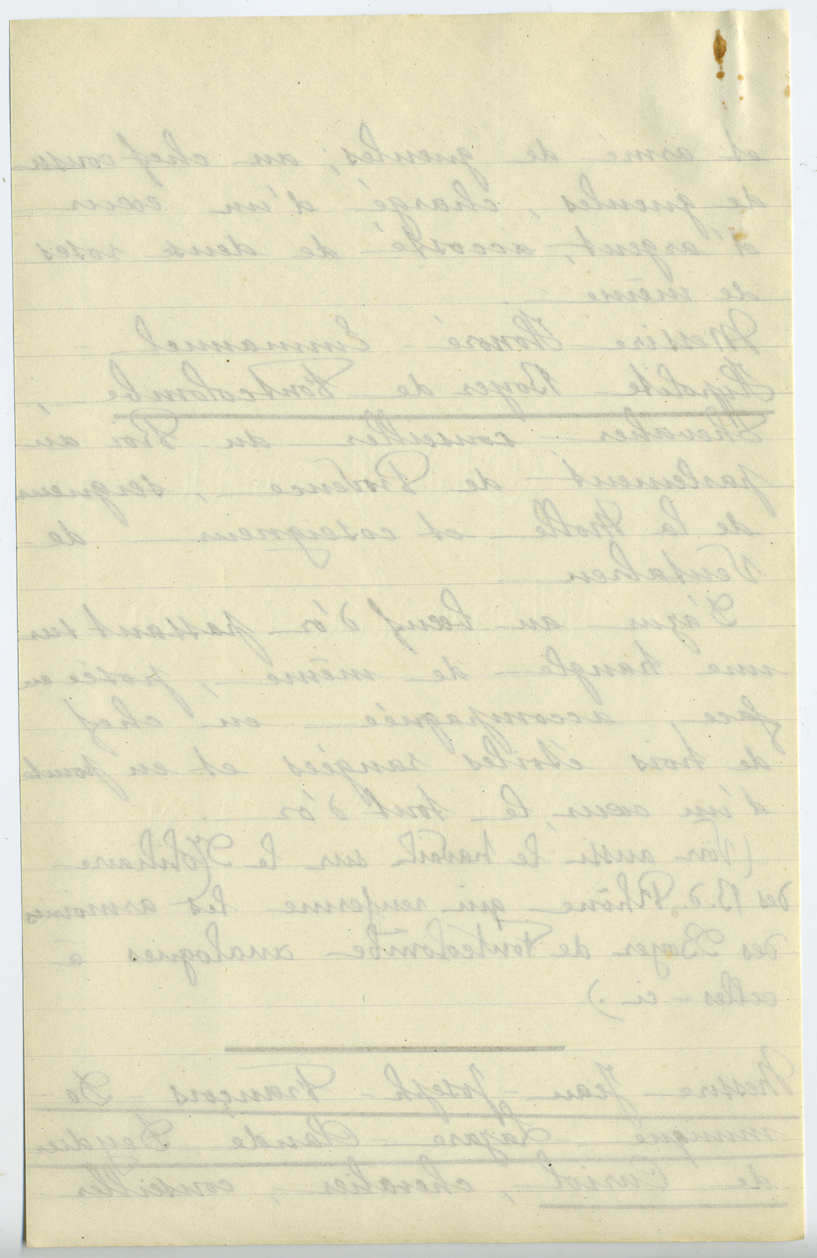 et armé de gueules, au chef cousu
de gueules, chargé d'un cœur
d'argent, accosté de deux roses
de même.
Messire Honoré - Emmanuel -
Hypolite Boyer de Fontcolombe,
Chevalier conseiller du Roi au
parlement de Provence, seigneur
de la Molle et coseigneur de
Ventabren
D'azur au bœuf d'or passant sur
une trangle de même, posée en
face, accompagnée en chef
de trois étoiles rangées et en pointe
d'un cœur, le tout d'or.
(Voir aussi le travail sur le Nobiliaire
des B. d. Rhône qui renferme les armoiries
des Boyer de Fontcolombe analogues à
celles-ci.)
Messire Jean - Joseph - François - Do-
minique Lazare - Claude Leydier
de Curiol, chevalier, conseiller